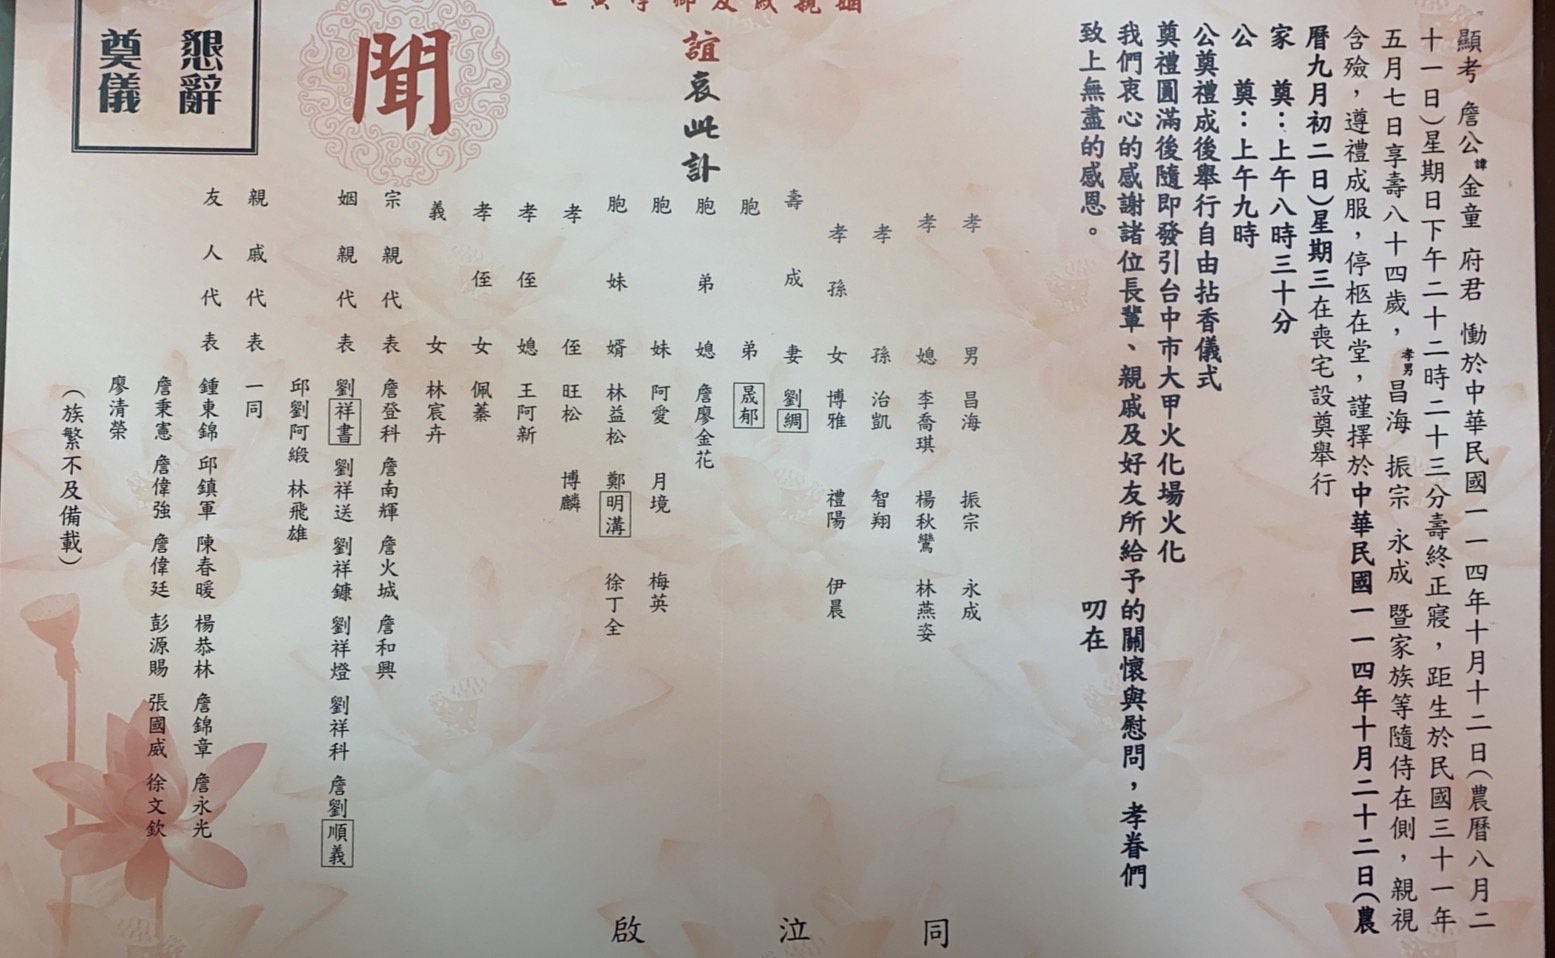 顯考 詹公諱金童 府君 慟於中華民國一一四年十月十二日(農曆八月二
十一日)星期日下午二十二時二十三分壽終正寢，距生於民國三十一年
五月七日享壽八十四歲，孝男昌海 振宗 永成 暨家族等隨侍在側，親視
含殮，遵禮成服，停柩在堂，謹擇於中華民國一一四年十月二十二日(農
曆九月初二日)星期三在喪宅設奠舉行
家 奠：上午八時三十分
公 奠：上午九時
公奠禮成後舉行自由拈香儀式
奠禮圓滿後隨即發引台中市大甲火化場火化
我們衷心的感謝諸位長輩、親戚及好友所給予的關懷與慰問，孝眷們
致上無盡的感恩。
叨在
姻親戚友鄉學寅世
誼哀此訃
聞
懇辭
奠儀
孝男 昌海 振宗 永成
孝媳 李喬琪 楊秋鸞 林燕姿
孝孫 治凱 智翔
孝孫女 博雅 禮陽 伊晨
壽成妻 劉綢
胞弟 晟郁
胞弟媳 詹廖金花
胞妹 阿愛 月境 梅英
胞妹婿 林益松 鄭明溝 徐丁全
孝侄 旺松 博麟
孝侄媳 王阿新
孝侄女 佩蓁
義女 林宸卉
宗親代表 詹登科 詹南輝 詹火城 詹和興
姻親代表 劉祥書 劉祥送 劉祥鐮 劉祥燈 劉祥科 詹劉順義
邱劉阿緞 林飛雄
親戚代表 一同
友人代表 鍾東錦 邱鎮軍 陳春暖 楊恭林 詹錦章 詹永光
詹秉憲 詹偉強 詹偉廷 彭源賜 張國威 徐文欽
廖清榮
(族繁不及備載)
同 泣 啟